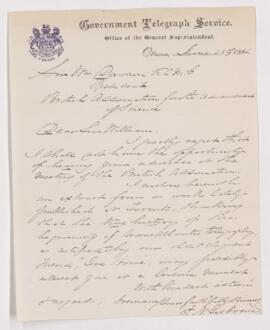 Government Telegraph Service.
Office of the General Superintendent.
Ottawa June 25th 1886
Sir Wm Dawson K.C.M.G
President
British Association for the Advancement
of Science
Dear Sir William,
I greatly regret that
I shall not have the opportunity
of hearing your address at the
meeting of the British Association.
I enclose herewith
an extract from a work lately
published in Toronto, thinking
that the true history of the
beginning of transatlantic telegraphy
as
by our old & eloquent
friend, Joe Howe, may possibly
interest you at a leisure moment
With kindest
regard, I remain yours faithfully
F. N. Gisborne